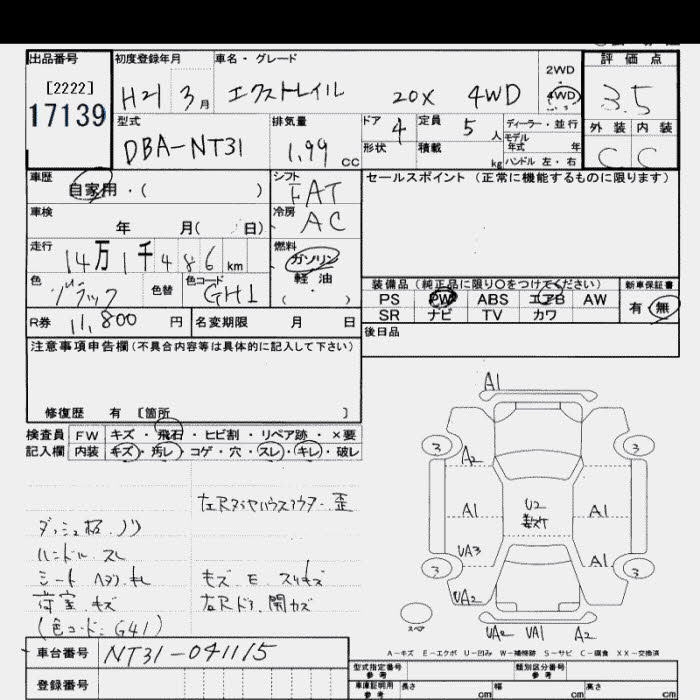 出品番号 初度登録年月 車名・グレード 2WD 4WD 評価点
[2222]
17139 H21 3月 エクストレイル 20X 4WD 3.5
型式 排気量 ドア 定員 ディーラー・並行 外装 内装
DBA-NT31 1.99 cc 4 5人 モデル年式 年 C C
形状 積載 kg ハンドル 左・右
車歴 シフト セールスポイント (正常に機能するものに限ります)
自家用・( ) FAT
車検 冷房
年 月( 日) AC
走行 燃料
14万1千486km ガソリン
色 色替 色コード 軽油
ブラック GH1 ( )
装備品(純正品に限り○をつけてください) 新車保証書
PS PW ABS エアB AW 有・無
SR ナビ TV カワ
R券 11,800円 名変期限 月 日 後日品
注意事項申告欄(不具合内容等は具体的に記入して下さい)
修復歴 有 [箇所 ]
検査員 FW キズ・飛石・ヒビ割・リペア跡・×要
記入欄 内装 キズ・汚レ・コゲ・穴・スレ・キレ・破レ
左Rタイヤハウスアウター歪
ダッシュ板.ノリ
ハンドル.スレ
シート ヘタリ.キレ キズ E スリキズ
荷室.キズ 左Rドア.開カズ
(色コード:G41)
A1
3 3
A2
A1 U2 A1
UA3 A1
3 3
UA2
スペア
UA2 UA1 A2
A-キズ E-エクボ U-凹み W-補修跡 S-サビ C-腐食 XX-交換済
車台番号 NT31-041115
登録番号
型式指定番号 参考 類別区分番号 参考
車庫証明用 参考 長さ cm 幅 cm 高さ cm